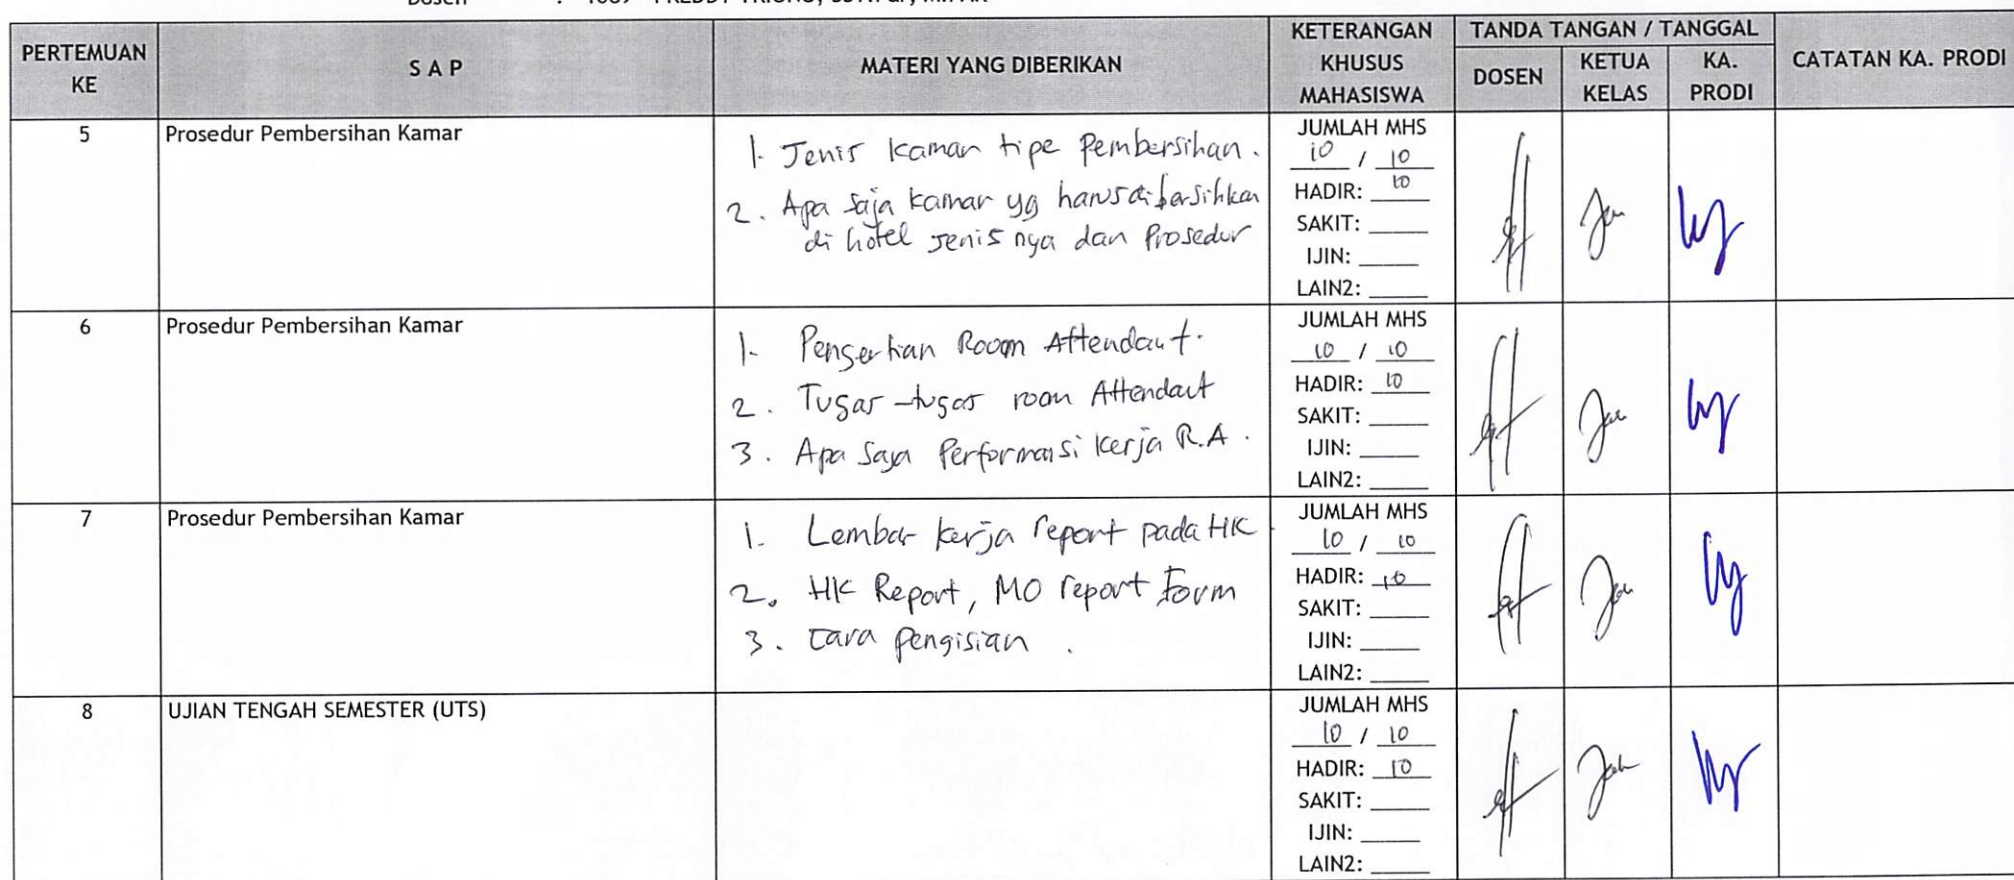 PERTEMUAN KE
S A P
MATERI YANG DIBERIKAN
KETERANGAN KHUSUS MAHASISWA
TANDA TANGAN / TANGGAL
DOSEN
KETUA KELAS
KA. PRODI
CATATAN KA. PRODI
5
Prosedur Pembersihan Kamar
1. Jenis kamar tipe Pembersihan.
2. Apa saja kamar yg harus dibersihkan
di hotel jenis nya dan Prosedur
JUMLAH MHS
10 / 10
HADIR: 10
SAKIT:
IJIN:
LAIN2:
6
Prosedur Pembersihan Kamar
1. Pengertian Room Attendant.
2. Tugas-tugas room Attendant
3. Apa Saja Performansi kerja R.A.
JUMLAH MHS
10 / 10
HADIR: 10
SAKIT:
IJIN:
LAIN2:
7
Prosedur Pembersihan Kamar
1. Lembar kerja report pada HK
2. HK Report, MO report Form
3. Cara pengisian.
JUMLAH MHS
10 / 10
HADIR: 10
SAKIT:
IJIN:
LAIN2:
8
UJIAN TENGAH SEMESTER (UTS)
JUMLAH MHS
10 / 10
HADIR: 10
SAKIT:
IJIN:
LAIN2: